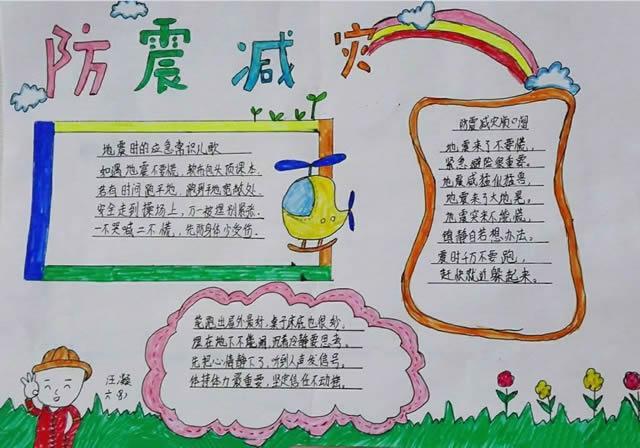 防震减灾
地震时的应急常识儿歌
如遇地震不要慌，软布包头顶课本.
若有时间跑平地，跑到平地宽敞处.
安全走到操场上，万一被埋别紧张.
一不哭喊二不慌，先防身体少受伤.
防震减灾顺口溜
地震来了不要慌，
紧急避险很重要。
地震来了大地晃。
地震突来不能慌，
镇静自若想办法。
震时千万不要跑，
赶快就近躲起来。
能跑出屋外最好，桌子床底也很妙。
埋在地下不能闹，冷静要思考。
先把心情静下了，听到人声发信号。
保持体力最重要，坚定信任不动摇。
汪凝
六